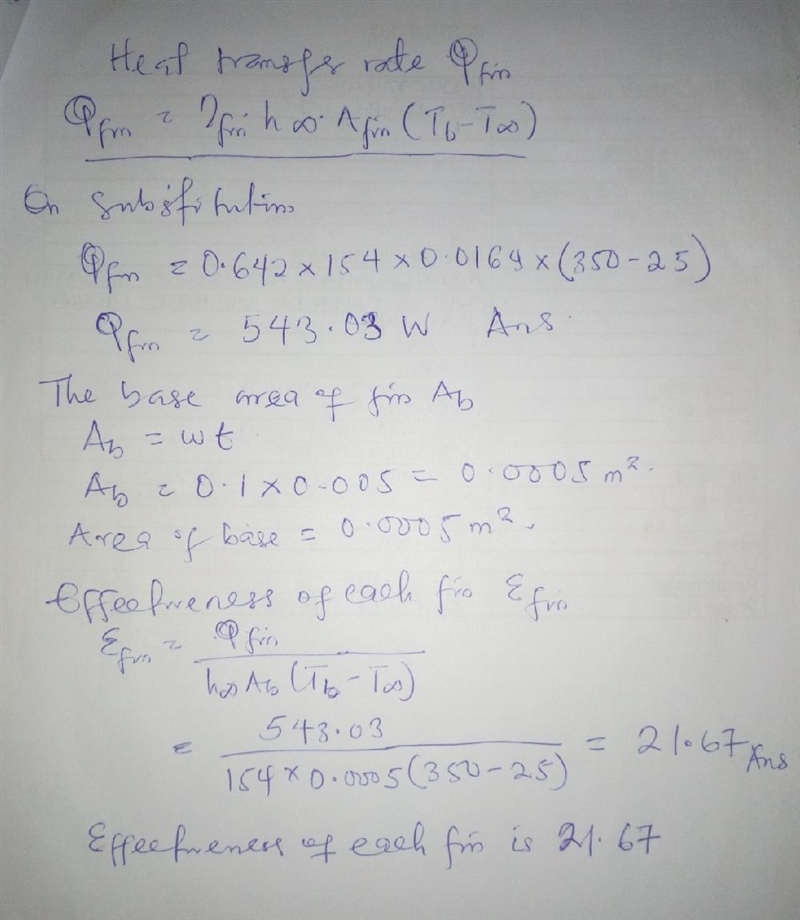 Heat transfer rate Q fin
Q fin = η fin h ∞ · A fin (T b - T ∞)
On substitution
Q fin = 0.642 × 154 × 0.0169 × (350 - 25)
Q fin = 543.03 W Ans
The base area of fin A b
A b = w t
A b = 0.1 × 0.005 = 0.0005 m².
Area of base = 0.0005 m².
Effectiveness of each fin ε fin
ε fin = Q fin / h ∞ A b (T b - T ∞)
= 543.03 / 154 × 0.0005 (350 - 25) = 21.67 Ans
Effectiveness of each fin is 21.67